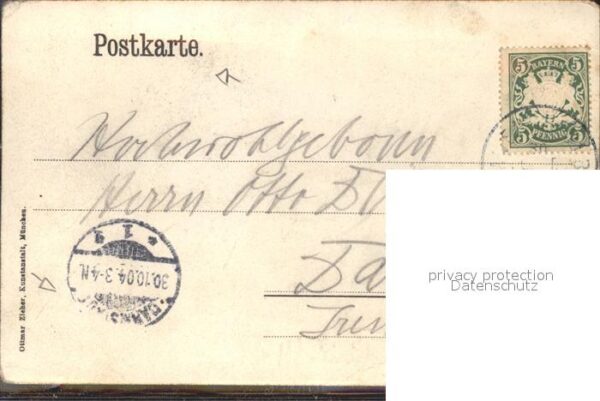 Postkarte.
5 BAYERN 5
5 PFENNIG 5
Hochwohlgeboren
Herrn Otto
1
30.10.04. 3-4 N.
Ottmar Zieher, Kunstanstalt, München.
privacy protection
Datenschutz